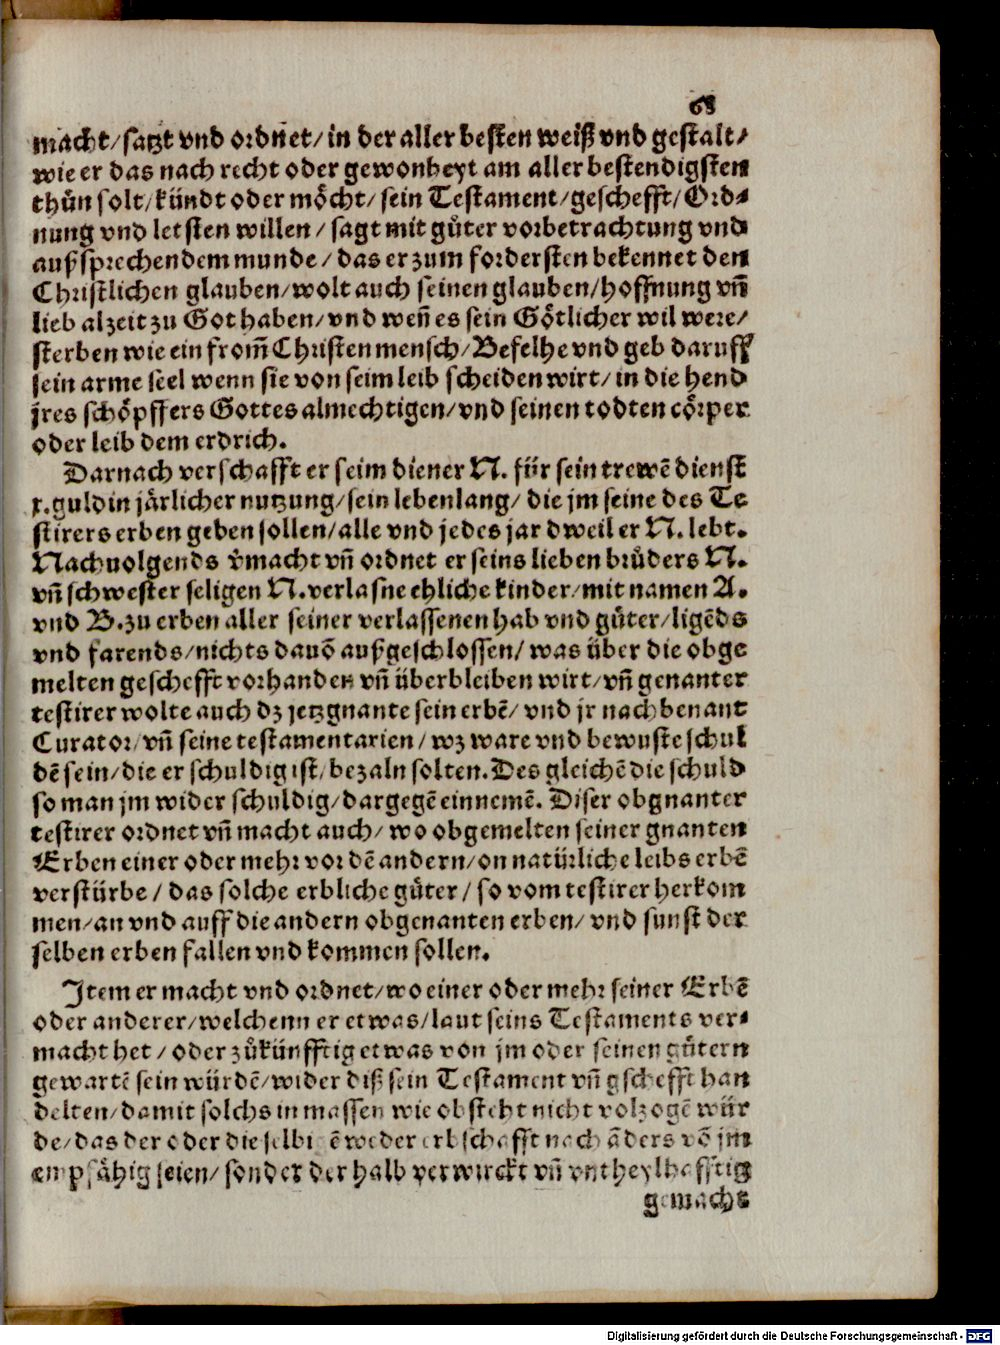 68
macht/satzt vnd ordnet/in der aller besten weiß vnd gestalt/
wie er das nach recht oder gewonheyt am aller bestendigsten
thůn solt/kündt oder möcht/sein Testament/geschefft/Ord-
nung vnd letsten willen/sagt mit gůter vorbetrachtung vnd
außsprechendem munde/das er zum fordersten bekennet den
Christlichen glauben/wolt auch seinen glauben/hoffnung vñ
lieb alzeit zu Got haben/vnd weñ es sein Götlicher wil were/
sterben wie ein from̃ Christen mensch/Befelhe vnd geb daruff
sein arme seel wenn sie von seim leib scheiden wirt/in die hend
jres schöpffers Gottes almechtigen/vnd seinen todten cörper
oder leib dem erdrich.
Darnach verschafft er seim diener N. für sein trewē dienst
x.guldin järlicher nutzung/sein lebenlang/die jm seine des Te
stirers erben geben sollen/alle vnd jedes jar dweil er N. lebt.
Nachuolgends v̉macht vñ ordnet er seins lieben brůders N.
vñ schwester seligen N.verlasne ehliche kinder/mit namen A.
vnd B.zu erben aller seiner verlassenen hab vnd gůter/ligēds
vnd farends/nichts dauō außgeschlossen/was über die obge
melten geschefft vorhanden vñ überbleiben wirt/vñ genanter
testirer wolte auch dz jetzgnante sein erbē/vnd jr nachbenant
Curator/vñ seine testamentarien/wz ware vnd bewuste schul
dē sein/die er schuldig ist/bezaln solten.Des gleichē die schuld
so man jm wider schuldig/dargegē einnemē. Diser obgnanter
testirer ordnet vñ macht auch/wo obgemelten seiner gnanten
Erben einer oder mehr vor dē andern/on natürliche leibs erbē
verstürbe/das solche erbliche gůter/so vom testirer herkom
men/an vnd auff die andern obgenanten erben/vnd sunst der
selben erben fallen vnd kommen sollen.
Item er macht vnd ordnet/wo einer oder mehr seiner Erbē
oder anderer/welchenn er etwas/laut seins Testaments ver-
macht het/oder zůkünfftig etwas von jm oder seinen gůtern
gewartē sein würdē/wider diß sein Testament vñ gschefft han
delten/damit solchs in massen wie obsteht nicht volzogē wür
de/das der oder die selbigē weder erbschafft nach āders vō jm
empfähig seien/sonder der halb verwurckt vñ vntheylhafftig
gemacht
Digitalisierung gefördert durch die Deutsche Forschungsgemeinschaft - DFG